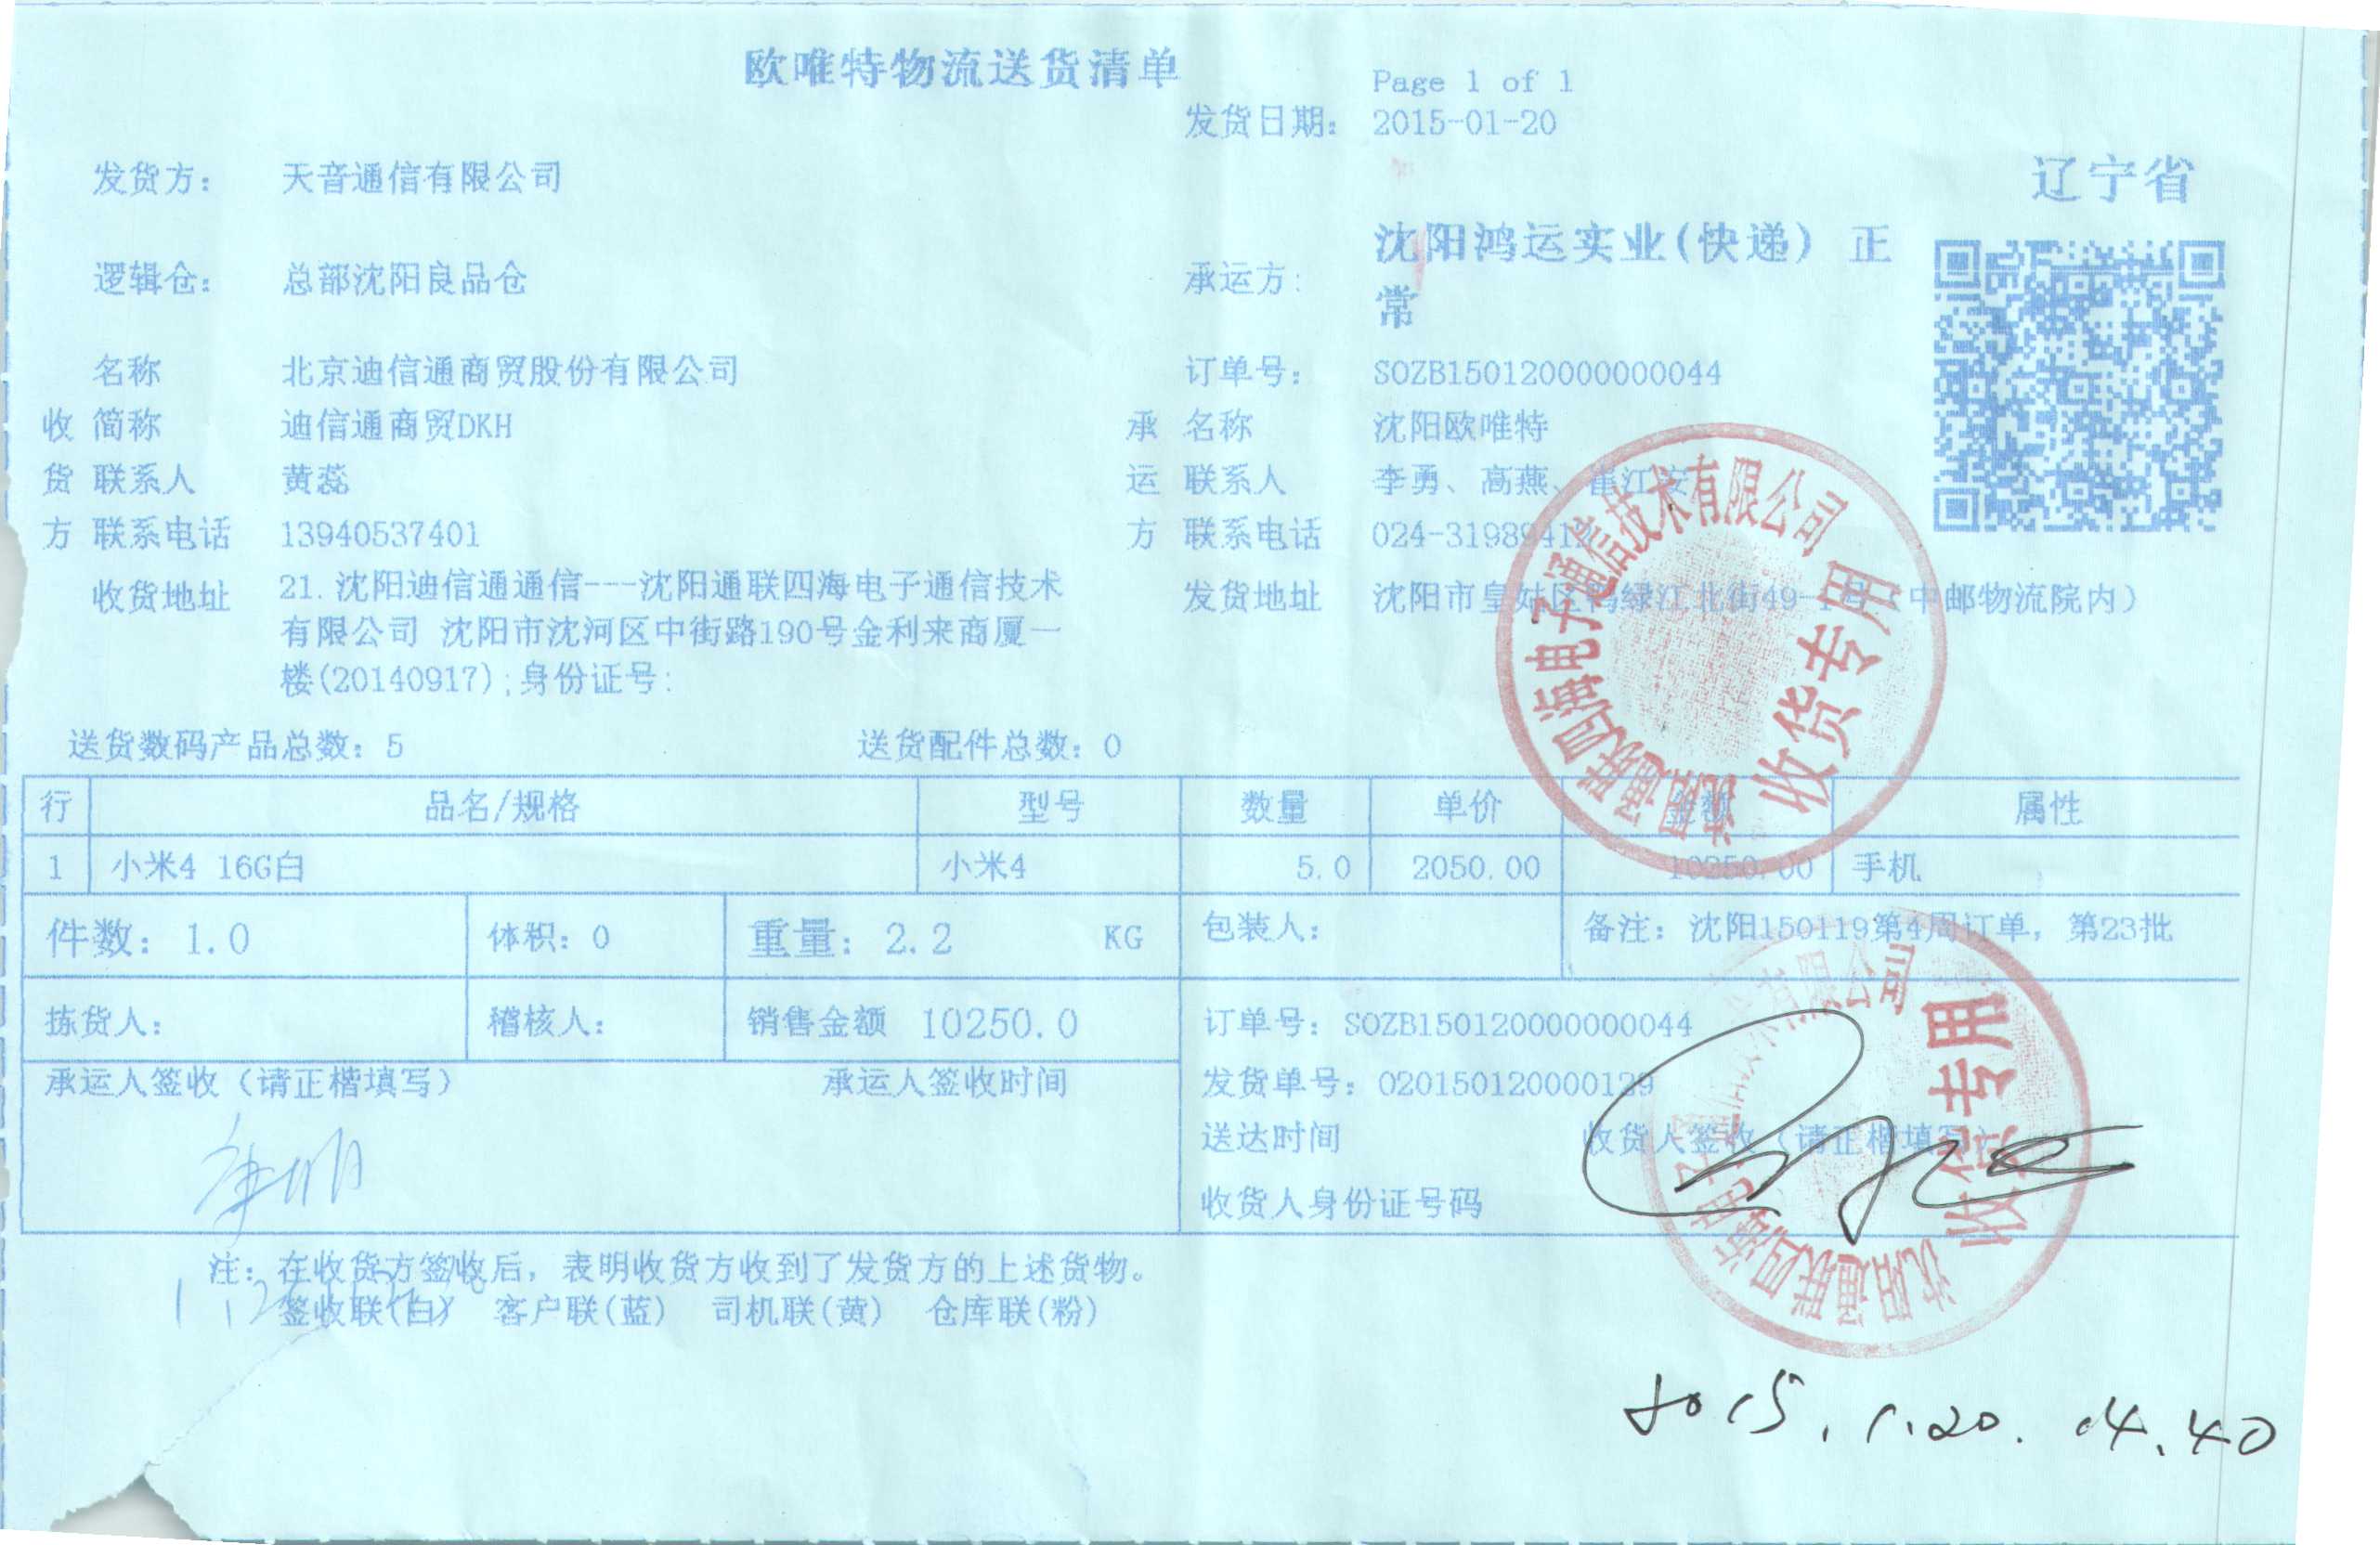 欧唯特物流送货清单
Page 1 of 1
发货日期: 2015-01-20
发货方: 天音通信有限公司
辽宁省
逻辑仓: 总部沈阳良品仓
承运方: 沈阳鸿运实业(快递) 正
常
名称 北京迪信通商贸股份有限公司
订单号: SOZB150120000000044
收 简称 迪信通商贸DKH
承 名称 沈阳欧唯特
货 联系人 黄蕊
运 联系人 李勇、高燕、崔江安
方 联系电话 13940537401
方 联系电话 024-31989412
收货地址 21.沈阳迪信通通信---沈阳通联四海电子通信技术
有限公司 沈阳市沈河区中街路190号金利来商厦一
楼(20140917);身份证号:
发货地址 沈阳市皇姑区鸭绿江北街49-1号(中邮物流院内)
沈阳通联四海电子通信技术有限公司
收货专用
送货数码产品总数: 5 送货配件总数: 0
行 品名/规格 型号 数量 单价 金额 属性
1 小米4 16G白 小米4 5.0 2050.00 10250.00 手机
件数: 1.0 体积: 0 重量: 2.2 KG 包装人: 备注: 沈阳150119第4周订单, 第23批
拣货人: 稽核人: 销售金额 10250.0 订单号: SOZB150120000000044
承运人签收(请正楷填写) 承运人签收时间 发货单号: 020150120000129
送达时间 收货人签收(请正楷填写)
收货人身份证号码
沈阳通联四海电子通信技术有限公司
收货专用
注: 在收货方签收后, 表明收货方收到了发货方的上述货物。
签收联(白) 客户联(蓝) 司机联(黄) 仓库联(粉)
2015.1.20. 14.40